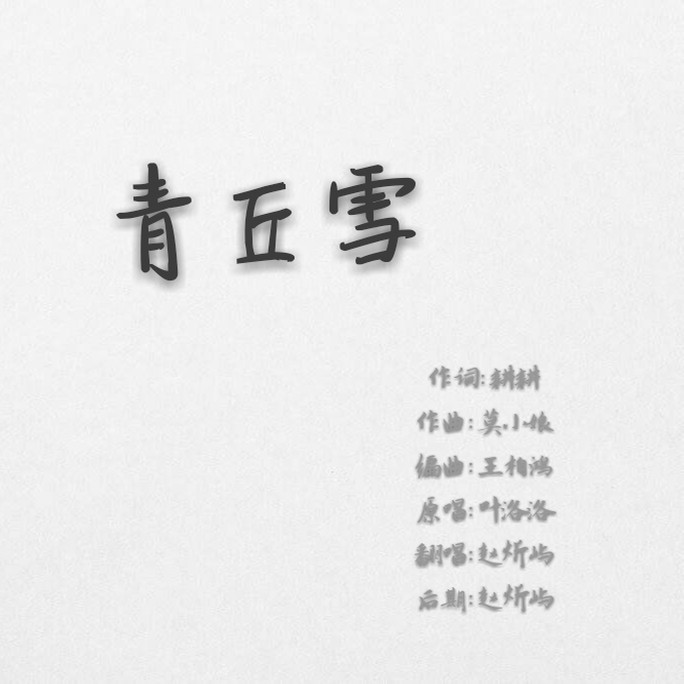 青丘雪
作词:耕耕
作曲:莫小娘
编曲:王柏鸿
原唱:叶洛洛
翻唱:赵炘屿
后期:赵炘屿